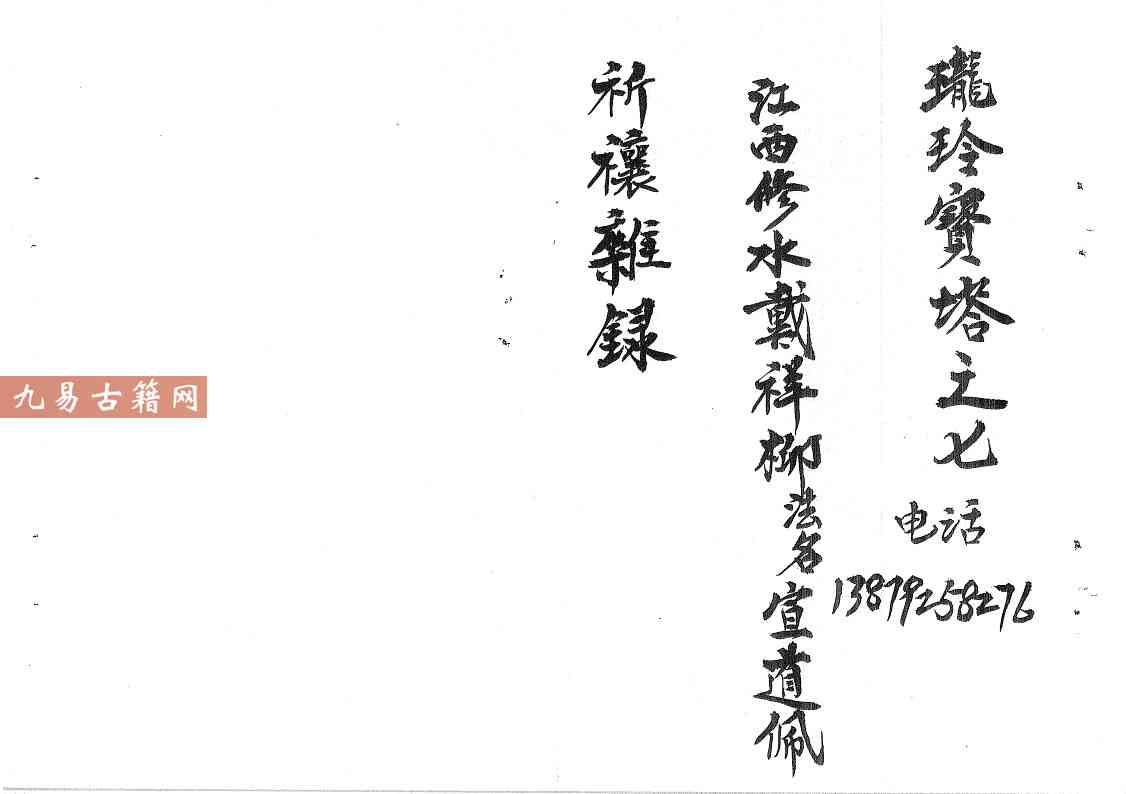 瓏玲寶塔之七
电话
13879258276
江西修水戴祥柳法名宣道佩
祈禳雜録
九易古籍网